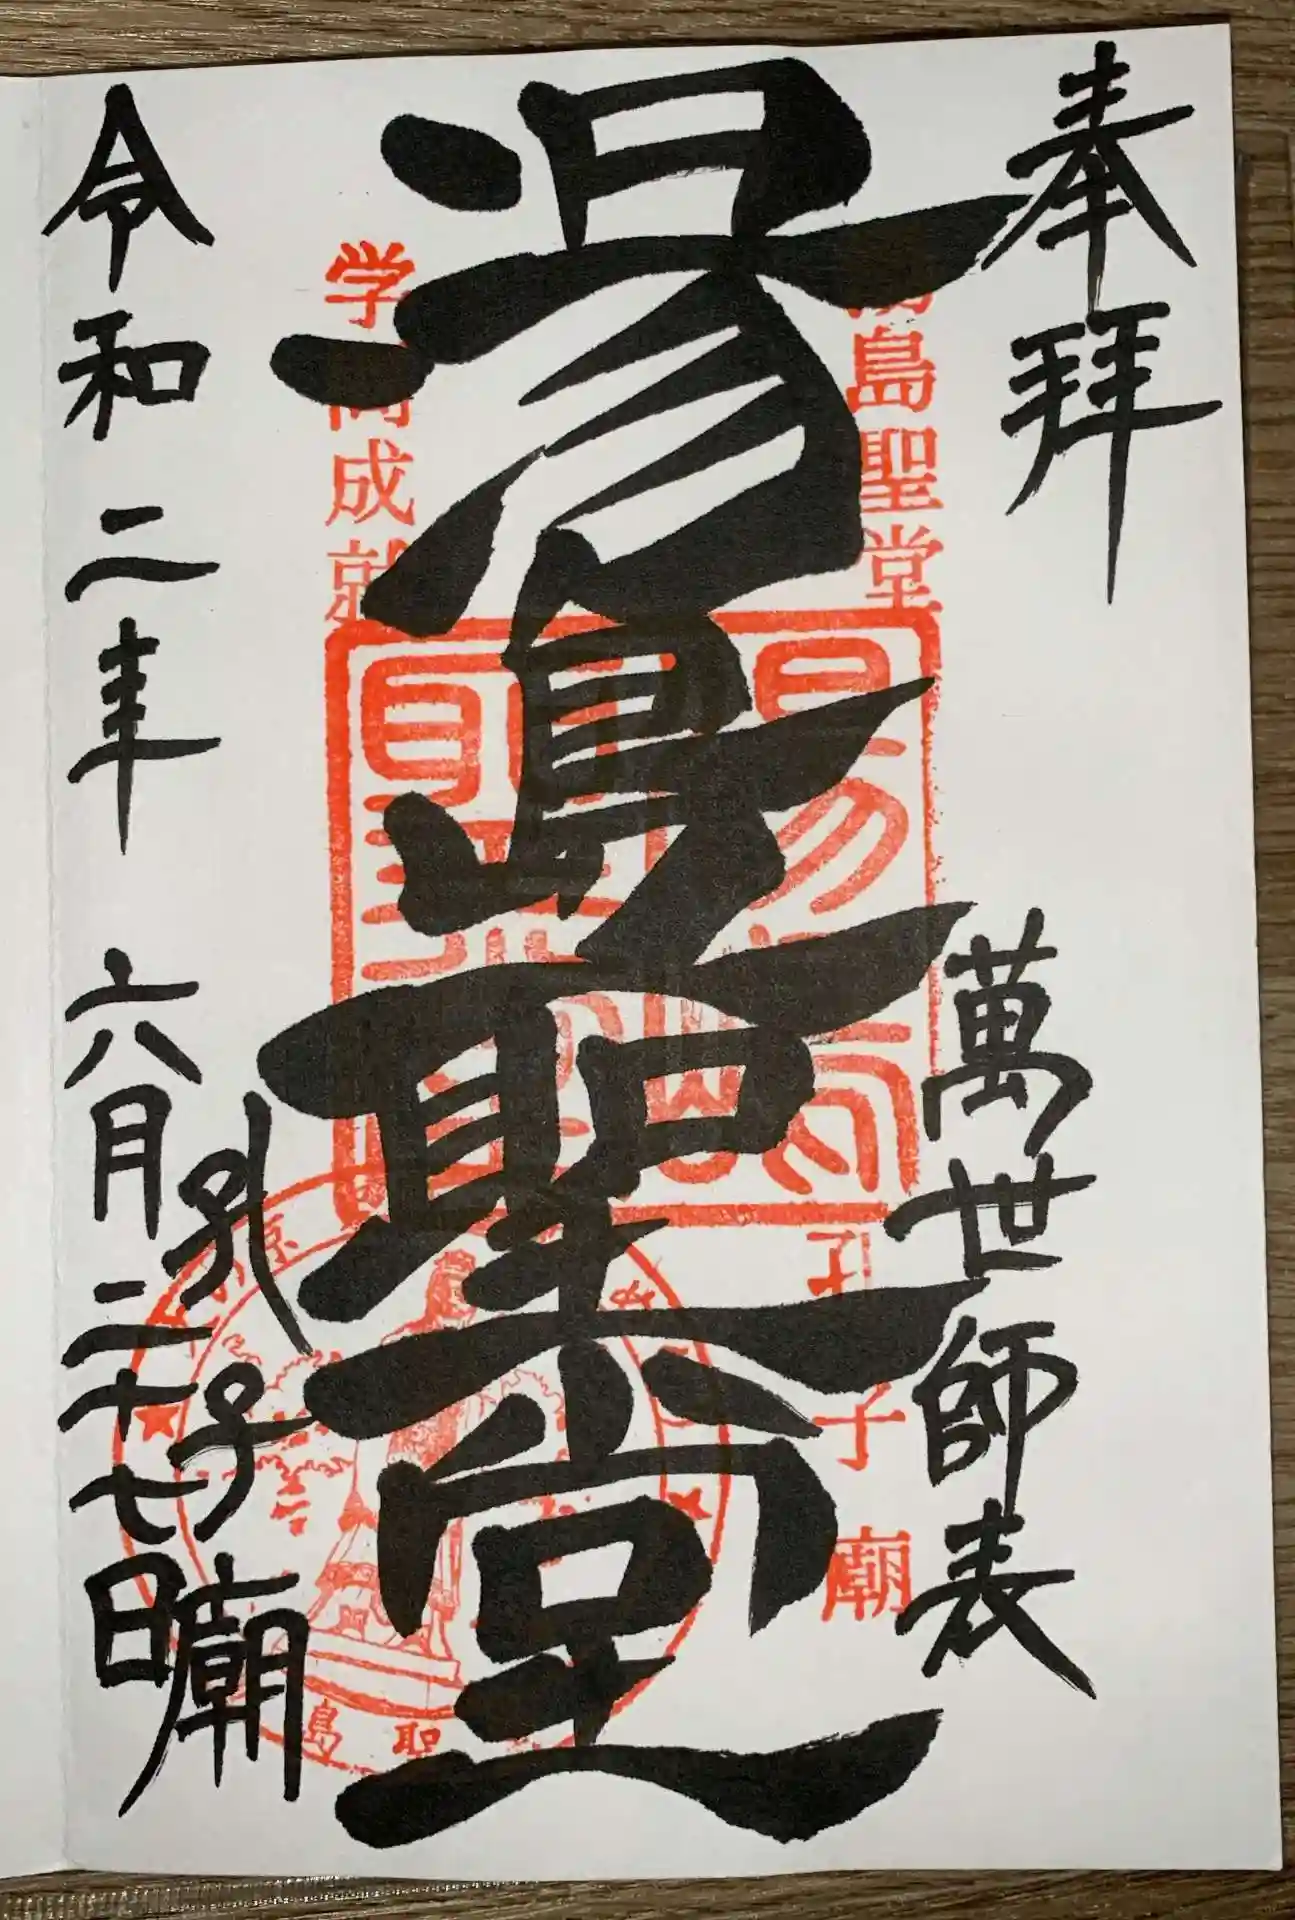 奉拝
萬世師表
島聖堂
孔子廟
湯島聖堂
学問成就
孔子廟
令和二年 六月二十七日
島聖